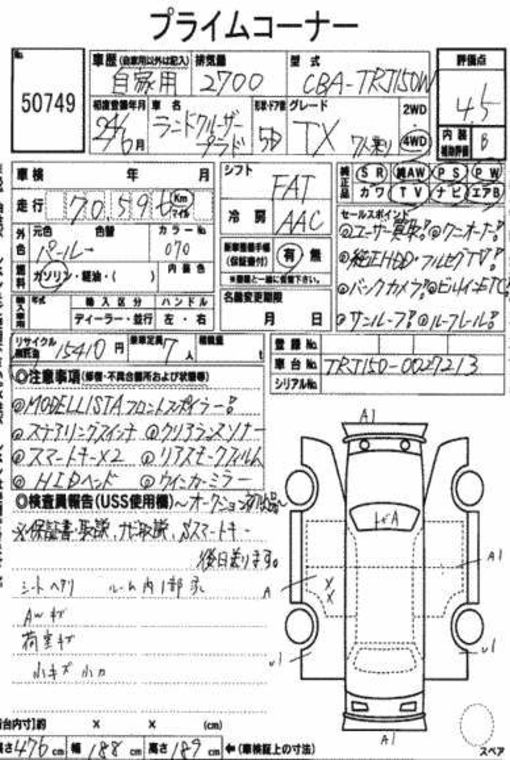 プライムコーナー
No.
50749
車歴(自家用以外は記入)
自家用
排気量
2700
型式
CBA-TRJ150W
評価点
4.5
初度登録年月
24/6月
車名
ランドクルーザー
プラド
形状・ドア数
5D
グレード
TX 7人乗り
2WD
4WD
内装
補助評価
B
車検 年 月
走行
70,596
Km
マイル
シフト
FAT
冷房
AAC
純正品
SR 純AW PS PW
カワ TV ナビ エアB
外色
元色 色替
パール
カラーNo.
070
燃料
ガソリン・軽油・( )
内装色
新車整備手帳
(保証書付)
有 無
※書類と一緒に省略下さい。
セールスポイント
◎ユーザー買取! ◎ワンオーナー!
◎純正HDD・フルセグTV!
◎バックカメラ! ◎ビルインETC!
◎サンルーフ! ◎ルーフレール!
輸入車用
年式
輸入区分
ディーラー・並行
ハンドル
左・右
名義変更期限
月 日
リサイクル
預託金
15410円
乗車定員
7人
積載量
t
登録No.
車台No. TRJ150-0027213
シリアルNo.
◎注意事項(修復・不具合箇所および状態等)
◎MODELLISTAフロントスポイラー!
◎ステアリングスイッチ ◎クリアランスソナー
◎スマートキーX2 ◎リアスモークフィルム
◎HIDヘッド ◎ウインカーミラー
◎検査員報告(USS使用欄)～オークション初出品～
※保証書・取説、ナビ取説、Sスマートキー
後日送ります。
シートヘタリ ルーム内1部汚
AWキズ
荷室キズ
小キズ小凹
A1
トビA
A1
A
X
X
U1
U1
A1
スペア
荷台内寸】約 × × (cm)
長さ476cm 幅188cm 高さ189cm ←(車検証上の寸法)